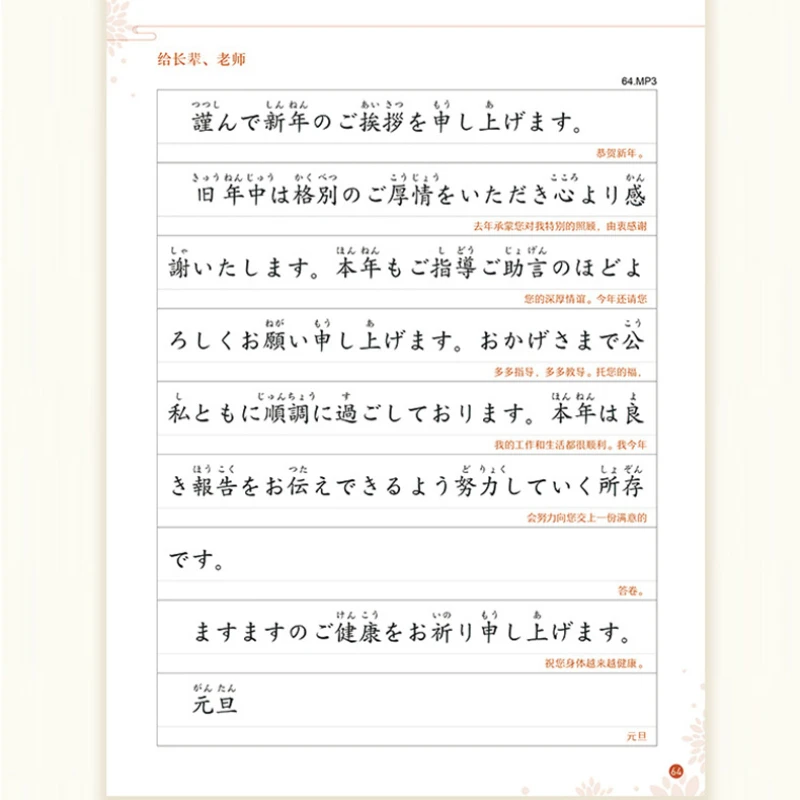 给长辈、老师
64.MP3
つつし しんねん あいさつ もう あ
謹んで新年のご挨拶を申し上げます。
恭贺新年。
きゅうねんじゅう かくべつ こうじょう こころ かん
旧年中は格別のご厚情をいただき心より感
去年承蒙您对我特别的照顾，由衷感谢
しゃ ほんねん しどう じょげん
謝いたします。本年もご指導ご助言のほどよ
您的深厚情谊。今年还请您
ねが もう あ こう
ろしくお願い申し上げます。おかげさまで公
多多指导，多多教导。托您的福，
し じゅんちょう す ほんねん よ
私ともに順調に過ごしております。本年は良
我的工作和生活都很顺利。我今年
ほうこく つた どりょく しょぞん
き報告をお伝えできるよう努力していく所存
会努力向您交上一份满意的
です。
答卷。
けんこう いの もう あ
ますますのご健康をお祈り申し上げます。
祝您身体越来越健康。
がんたん
元旦
元旦
64